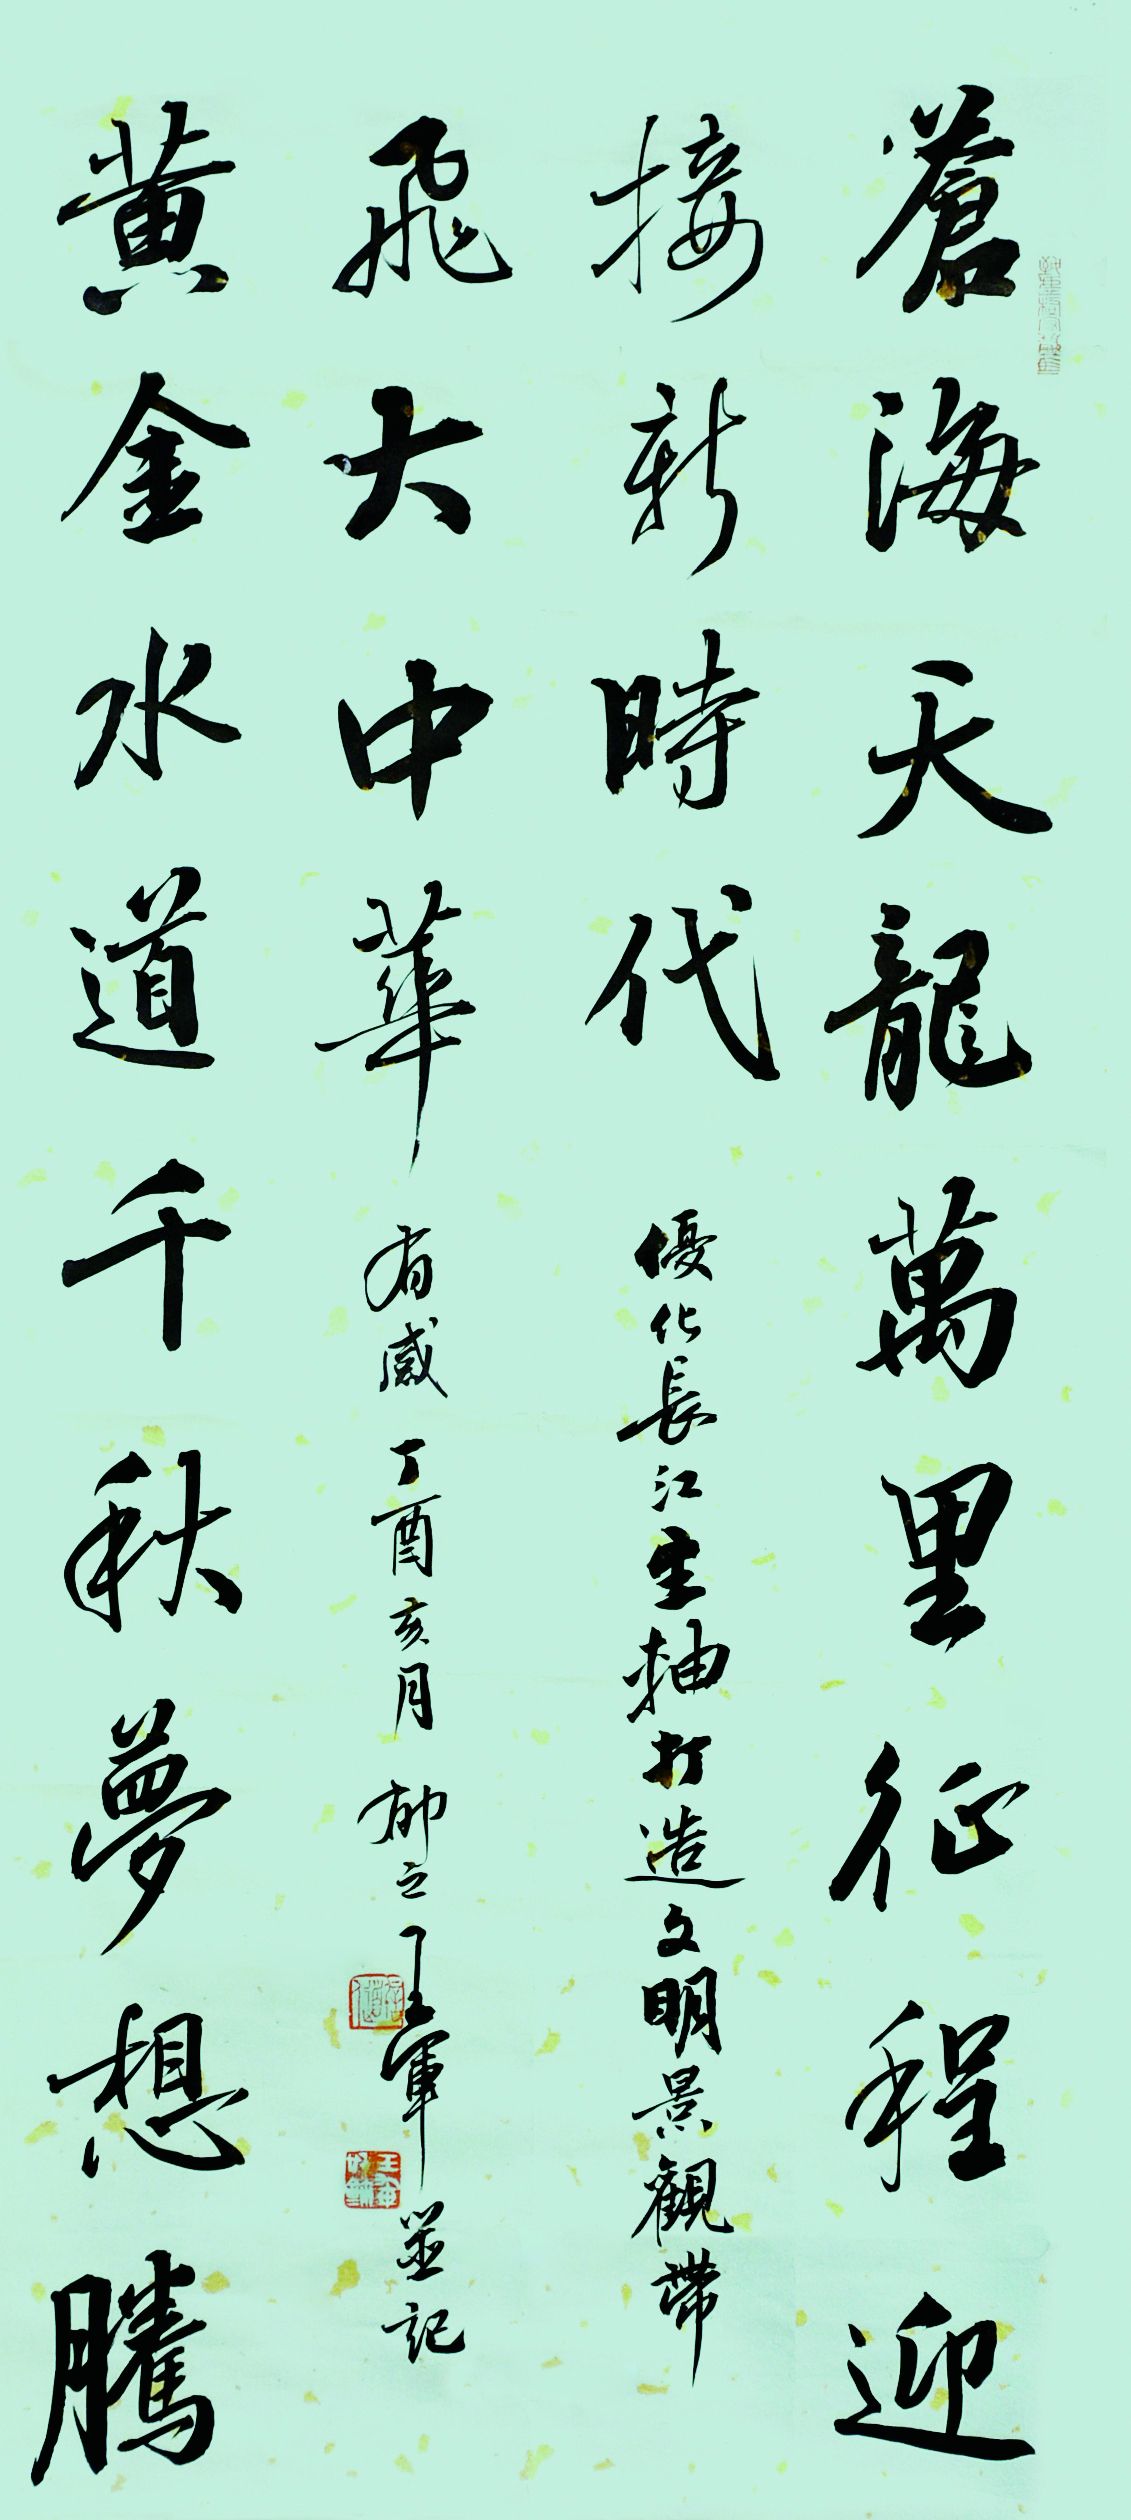 蒼海天龍萬里征程迎
接新時代
黃金水道千秋夢想騰
飛大中華
優化長江主軸打造文明景觀帶
有感 丁酉亥月 王軍並記